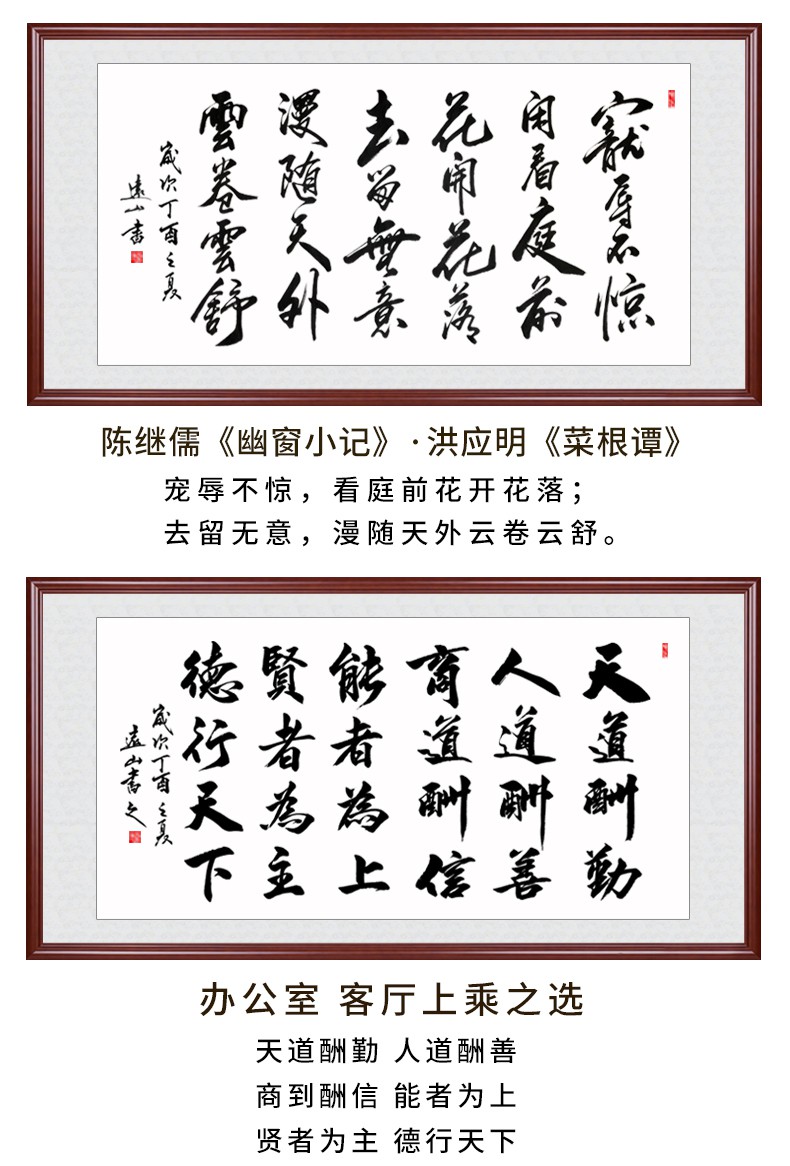 寵辱不惊
闲看庭前
花開花落
去留無意
漫随天外
雲卷雲舒
歲次丁酉之夏
遠山書
陈继儒《幽窗小记》·洪应明《菜根谭》
宠辱不惊，看庭前花开花落；
去留无意，漫随天外云卷云舒。
天道酬勤
人道酬善
商道酬信
能者為上
賢者為主
德行天下
歲次丁酉之夏
遠山書之
办公室 客厅上乘之选
天道酬勤 人道酬善
商到酬信 能者为上
贤者为主 德行天下